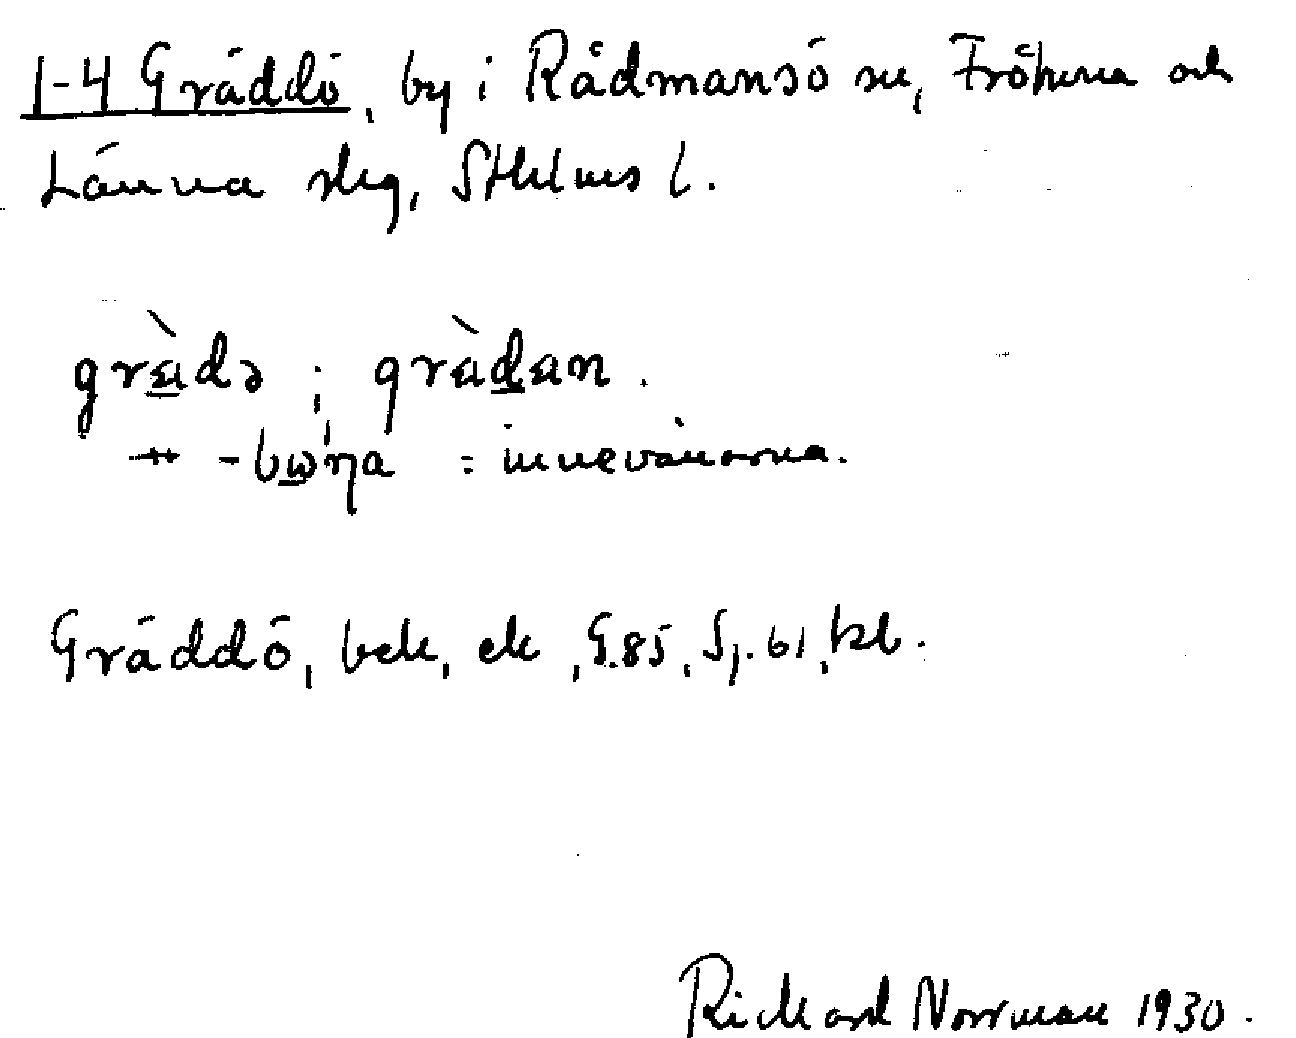 1-4 Gräddö, by i Rådmansö sn, Frötuna och
Länna slg, Sthlms l.
grädə ; grädan.
-bωηa = innevånarna.
Gräddö, bek, ek, G.85, Sj. 61, kbl.
Rickard Norrman 1930.